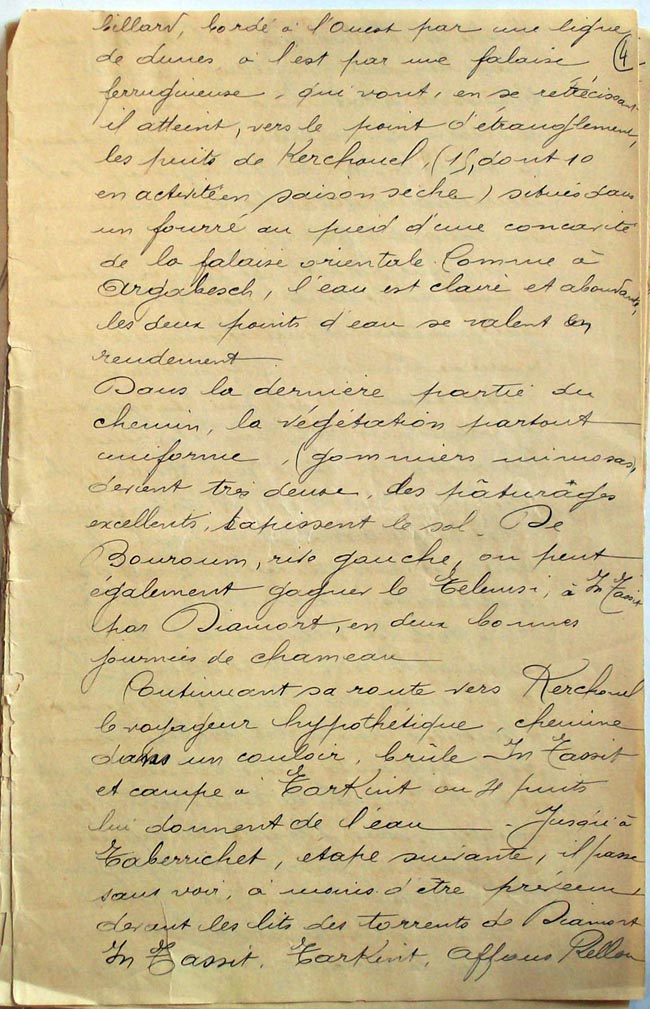 billard, bordé à l'Ouest par une ligne
4
de dunes à l'est par une falaise
ferrugineuse, qui vont, en se rétrécissant
il atteint, vers le point d'étranglement,
les puits de Kerchouel, (15, dont 10
en activité en saison sèche) situés dans
un fourré au pied d'une concavité
de la falaise orientale. Comme à
Argabesch, l'eau est claire et abondante,
les deux points d'eau se valent en
rendement
Dans la dernière partie du
chemin, la végétation partout
uniforme, (gommiers mimosas,
devient très dense, des pâturages
excellents, tapissent le sol. De
Bouroum, rive gauche, on peut
également gagner le Telemsi, à In Tassit
par Diamort, en deux bonnes
journées de chameau
Continuant sa route vers Kerchouel
le voyageur hypothétique, chemine
dans un couloir, brûle In Tassit
et campe à Tarkint ou 4 puits
lui donnent de l'eau. Jusqu'à
Taberrichet, étape suivante, il passe
sans voir, à moins d'être prévenu,
devant les lits des torrents de Diamort
In Tassit, Tarkint, Affous Rellou